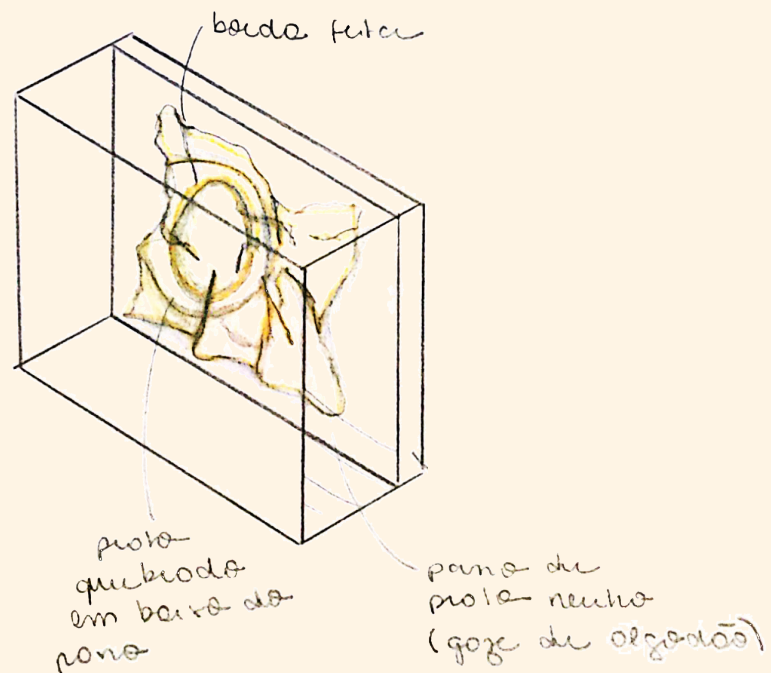 borda
prato
quebrado
em baixo do
pano
pano de
prato
(gaze de algodão)